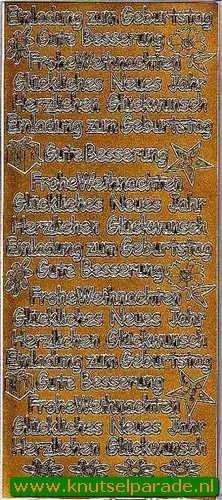 Einladung zum Geburtstag
Gute Besserung
Frohe Weihnachten
Glückliches Neues Jahr
Herzlichen Glückwunsch
Einladung zum Geburtstag
Gute Besserung
Frohe Weihnachten
Glückliches Neues Jahr
Herzlichen Glückwunsch
Einladung zum Geburtstag
Gute Besserung
Frohe Weihnachten
Glückliches Neues Jahr
Herzlichen Glückwunsch
Einladung zum Geburtstag
Gute Besserung
Frohe Weihnachten
Glückliches Neues Jahr
Herzlichen Glückwunsch
www.knutselparade.nl